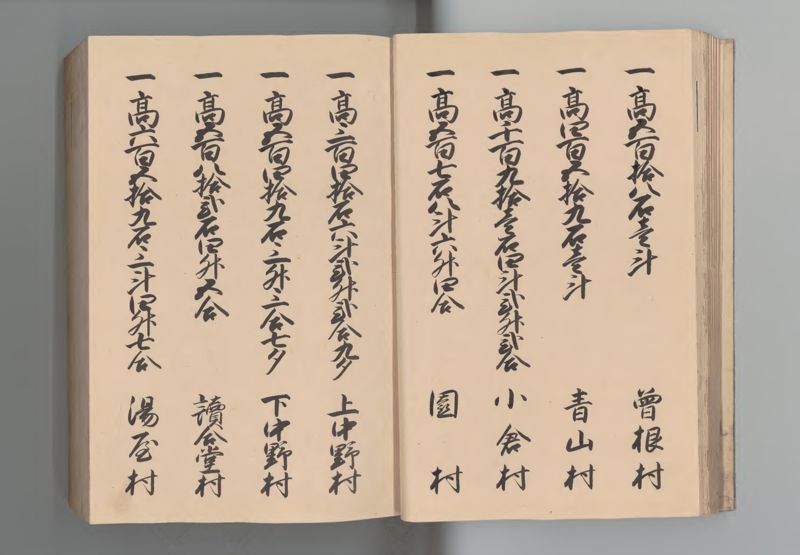 一高五百拾八石壱斗 曽根村
一高四百五拾九石壱斗 青山村
一高千百九拾壱石四斗弐升弐合 小倉村
一高五百七石八斗六升四合 園村
一高三百四拾石六斗弐升弐合九夕 上中野村
一高五百四拾九石三升三合七夕 下中野村
一高五百八拾弐石四升五合 讀合堂村
一高六百五拾九石三斗四升七合 湯屋村